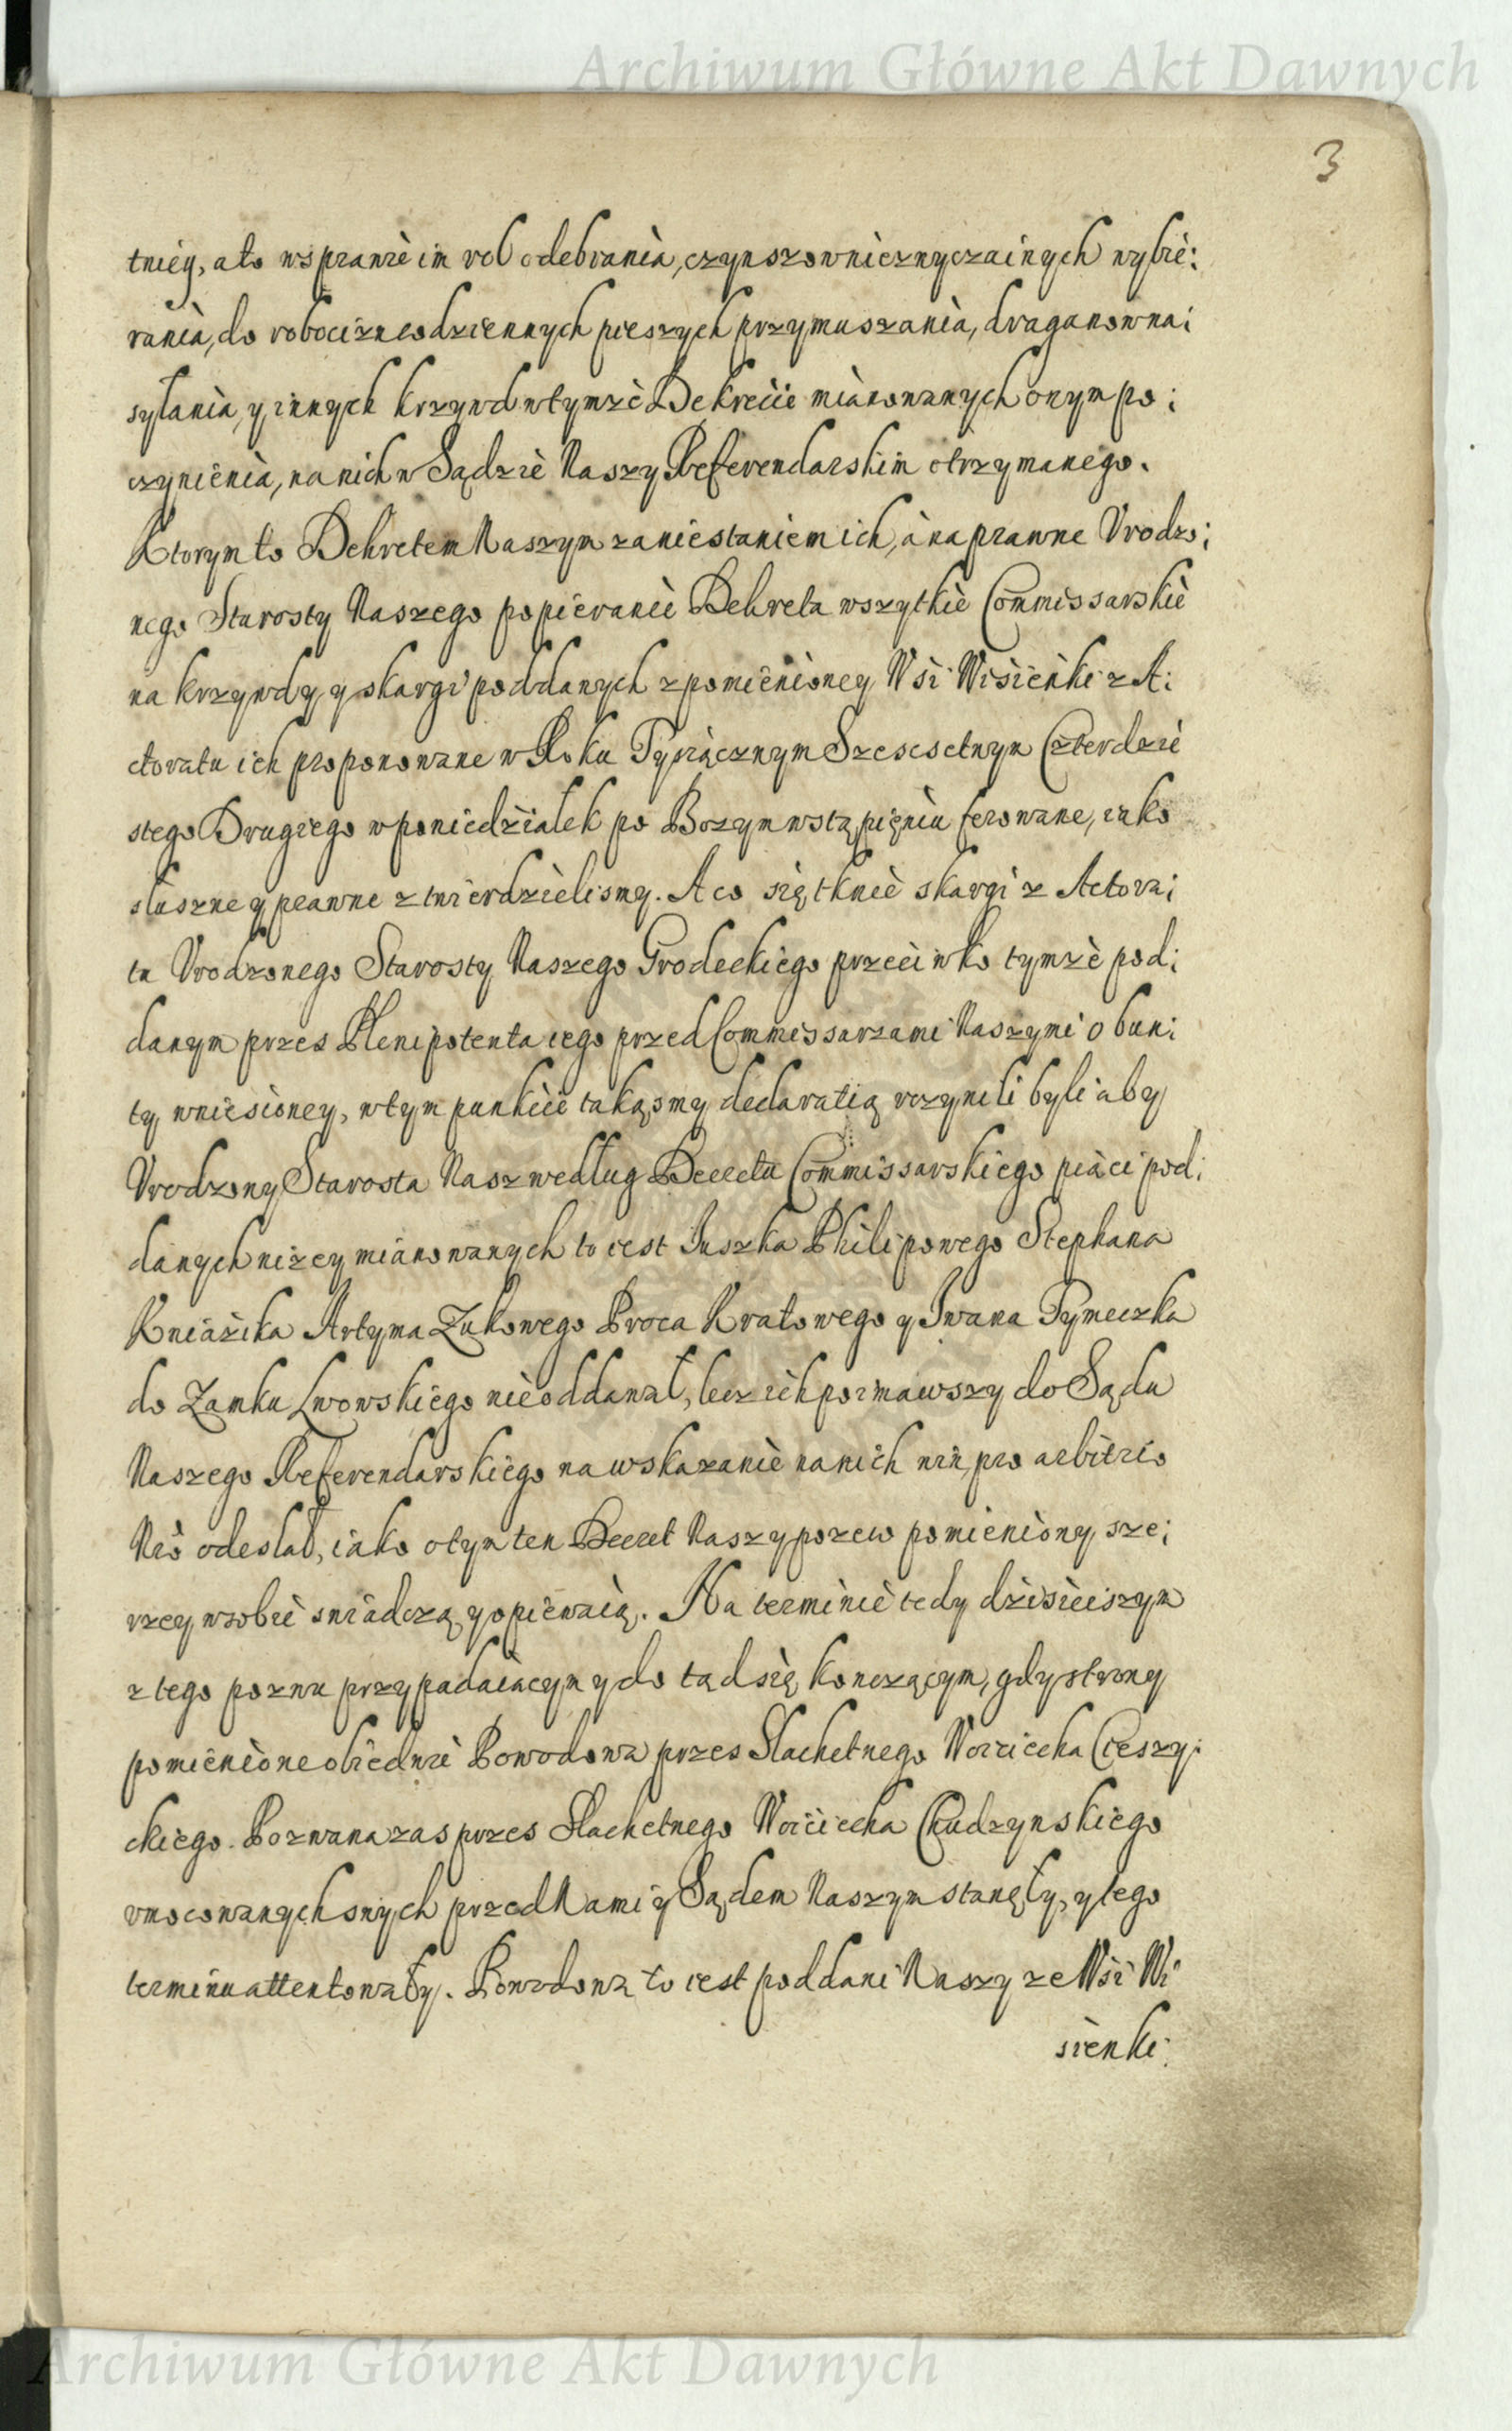 Archiwum Główne Akt Dawnych
3
tniey, a to w sprawie im rol odebrania, czynszow niezwyczainych wybie:
rania, do robocizn codziennych pieszych przymuszania, draganow na:
syłania, y innych krzywd w tymze Dekrecie mianowanych onym po:
czynienia, na nich w Sądzie Naszym Referendarskim otrzymanego.
Ktorym to Dekretem Naszym za niestaniem ich, a na prawne Vrodzo:
nego Starosty Naszego popieranie Dekreta wszytkie Commissarskie
na krzywdy y skargi poddanych z pomienioney Wsi Wisienki z A:
ctoratu ich proponowane w Roku Tysiącznym Szescsetnym Czterdzie
stego Drugiego w poniedziałek po Bozym wstąpieniu ferowane, iako
słuszne y prawne ztwierdzielismy. A co się tknie skargi z Actora:
tu Vrodzonego Starosty Naszego Grodeckiego przeciwko tymze pod:
danym przes Plenipotenta iego przed Commissarzami Naszymi o bun:
ty wniesioney, w tym punkcie takąsmy declaratią vczynili byli aby
Vrodzony Starosta Nasz według Decretu Commissarskiego piąci pod:
danych nizey mianowanych to iest Iuszka Philipowego Stephana
Kniazika Artyma Zukowego Proca Kratowego y Iwana Tymeczka
do Zamku Lwowskiego nie oddawał, lecz ich poimawszy do Sądu
Naszego Referendarskiego na wskazanie na nich win pro arbitrio
Nro odesłał, iako o tym ten Decret Naszy pozew pomieniony sze:
rzey w sobie swiadczą y opiewaią. Na terminie tedy dzisieiszym
z tego pozwu przypadaiącym y do tąd się konczącym, gdy strony
pomienione obiedwie Powodowa przes Slachetnego Woiciecha Cieszy:
ckiego. Pozwana zas przes Slachetnego Woiciecha Chudzynskiego
vmocowanych swych przed Nami y Sądem Naszym stanęły, y tego
terminu attentowały. Powodowa to iest poddani Naszy ze Wsi Wi
sienki:
Archiwum Główne Akt Dawnych